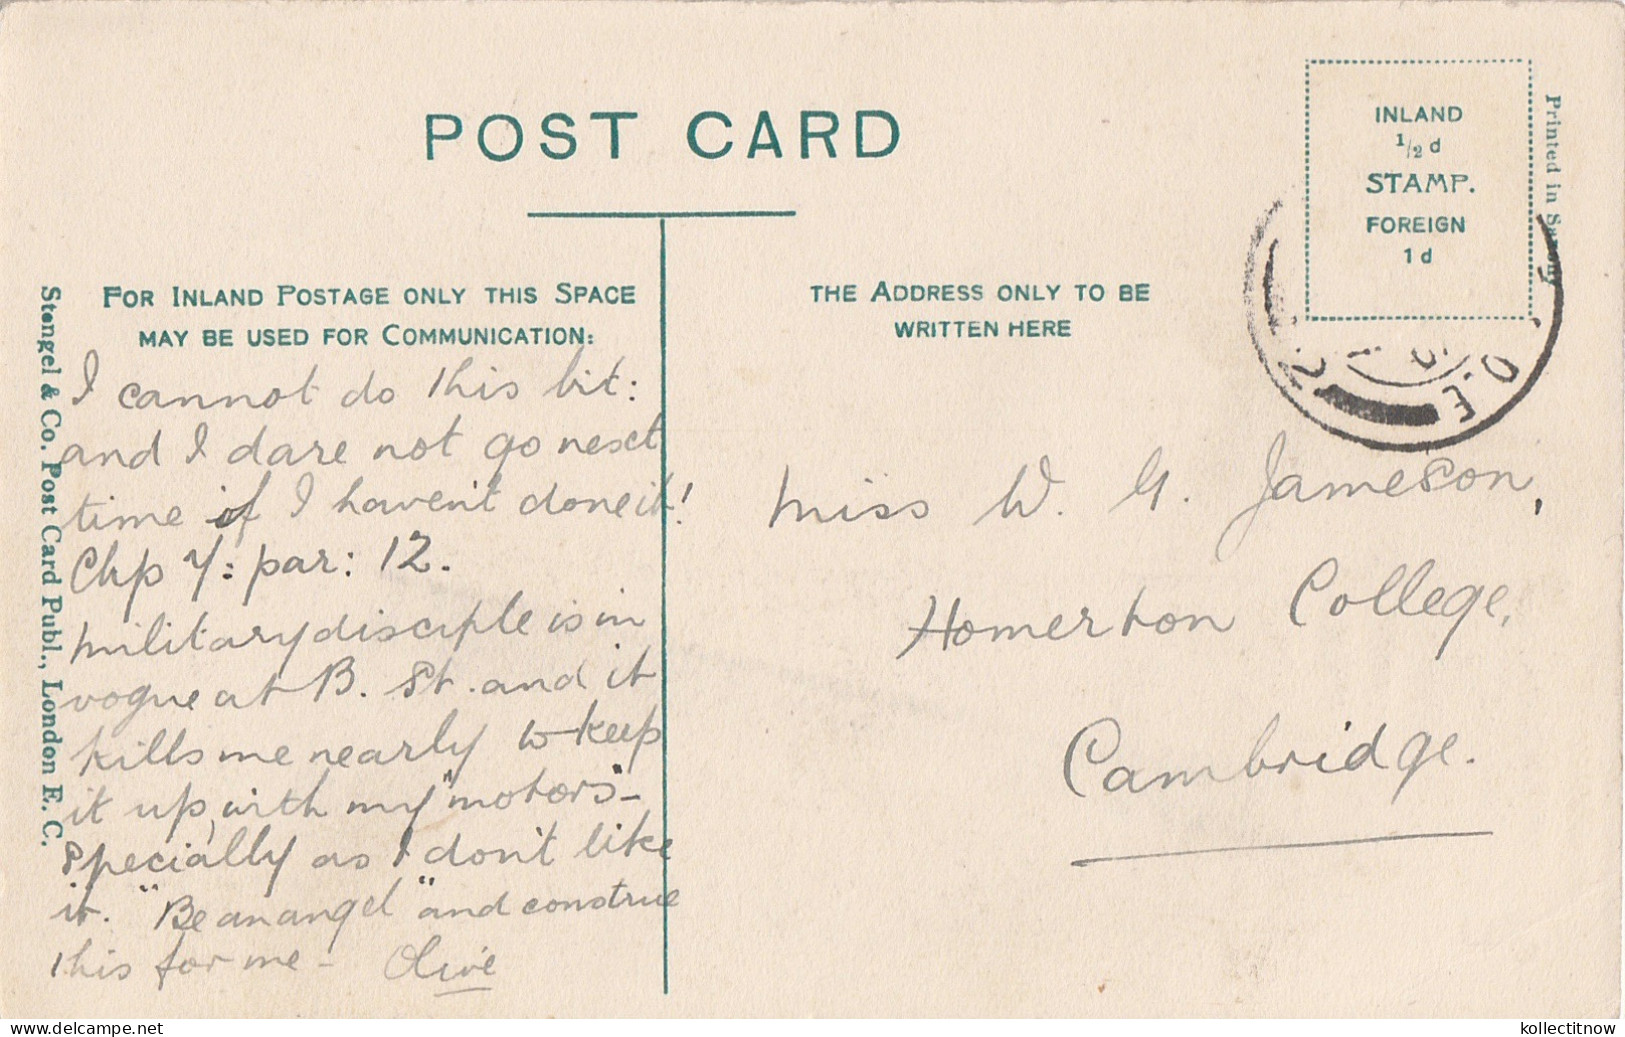 POST CARD
INLAND
1/2 d
STAMP.
FOREIGN
1d
Printed in Saxony
FOR INLAND POSTAGE ONLY THIS SPACE
MAY BE USED FOR COMMUNICATION:
THE ADDRESS ONLY TO BE
WRITTEN HERE
Stengel & Co. Post Card Publ., London E. C.
I cannot do this bit:
and I dare not go next
time if I haven't done it!
Chp 7: par: 12.
military disciple is in
vogue at B. St. and it
kills me nearly to keep
it up, with my "motors"-
specially as I don't like
it. "Be an angel" and construe
this for me - Olive
Miss W. G. Jameson,
Homerton College,
Cambridge.
www.delcampe.net
kollectitnow